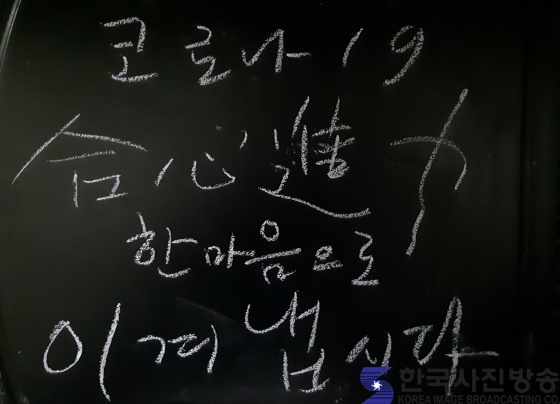 코로나 19
合心進力
한마음으로
이겨냅시다
한국사진방송
KOREA IMAGE BROADCASTING CO